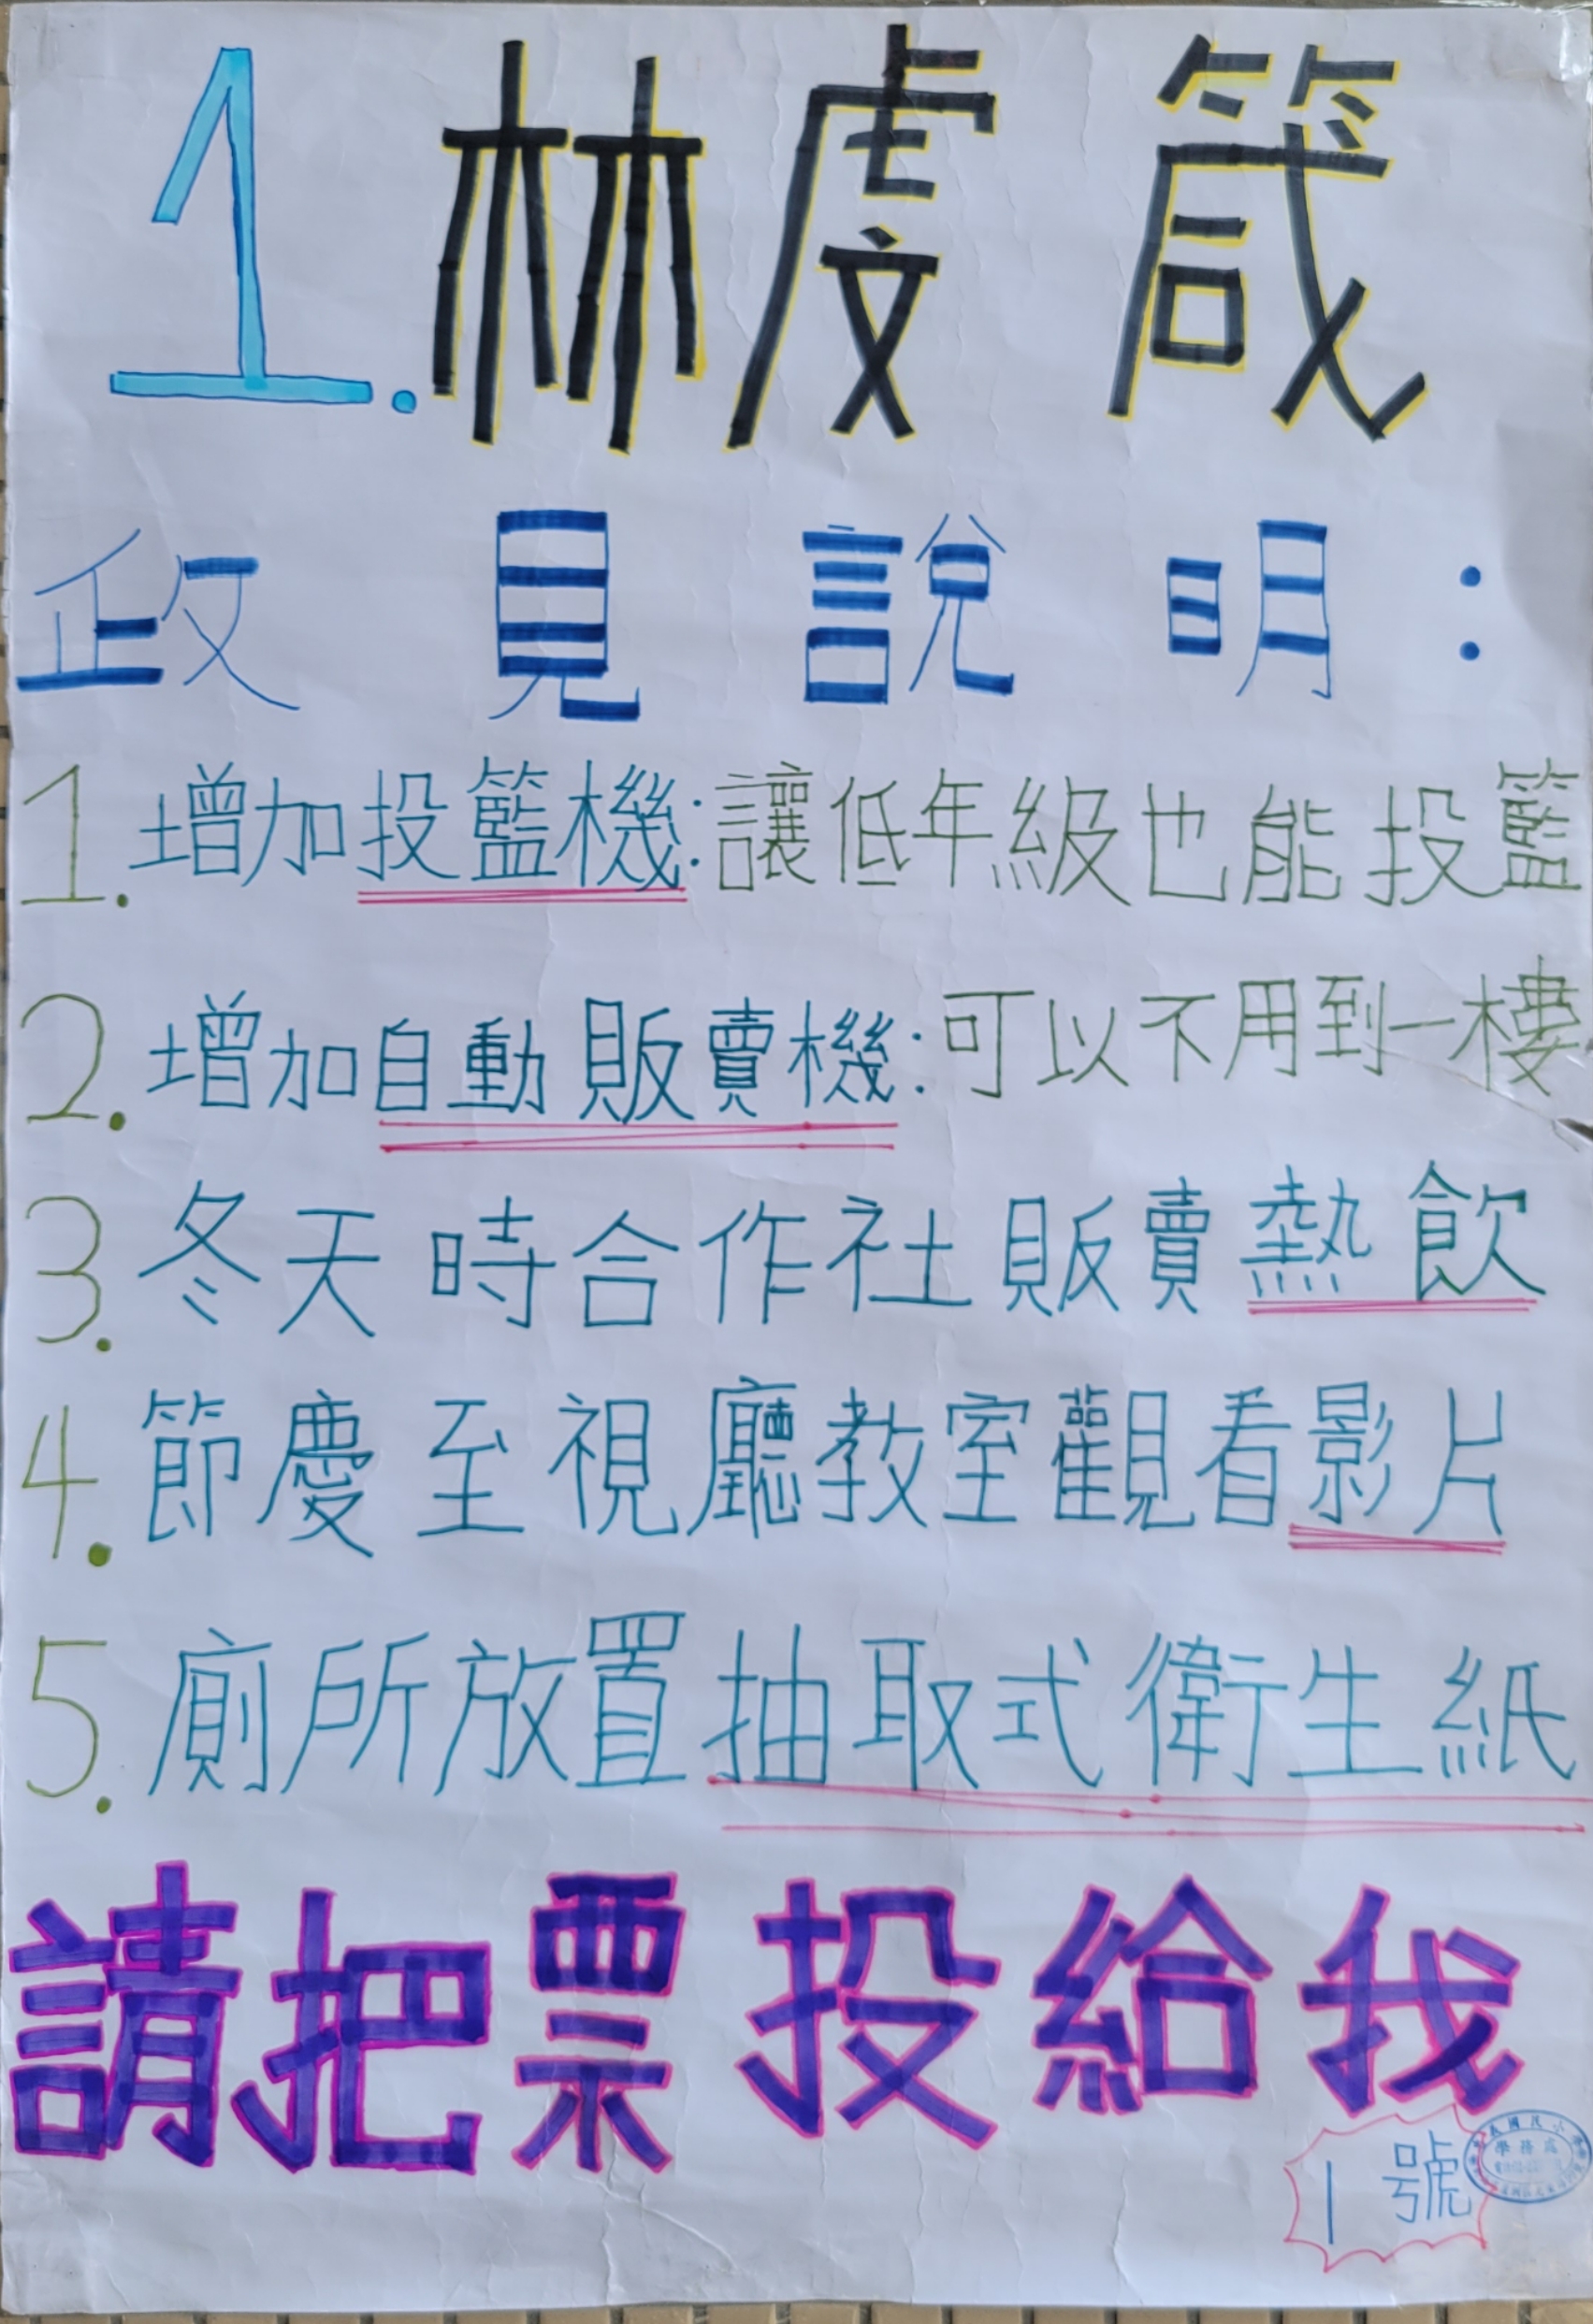 1.林虔箴
政見說明：
1.增加投籃機:讓低年級也能投籃
2.增加自動販賣機:可以不用到一樓
3.冬天時合作社販賣熱飲
4.節慶至視廳教室觀看影片
5.廁所放置抽取式衛生紙
請把票投給我
1號
學務處